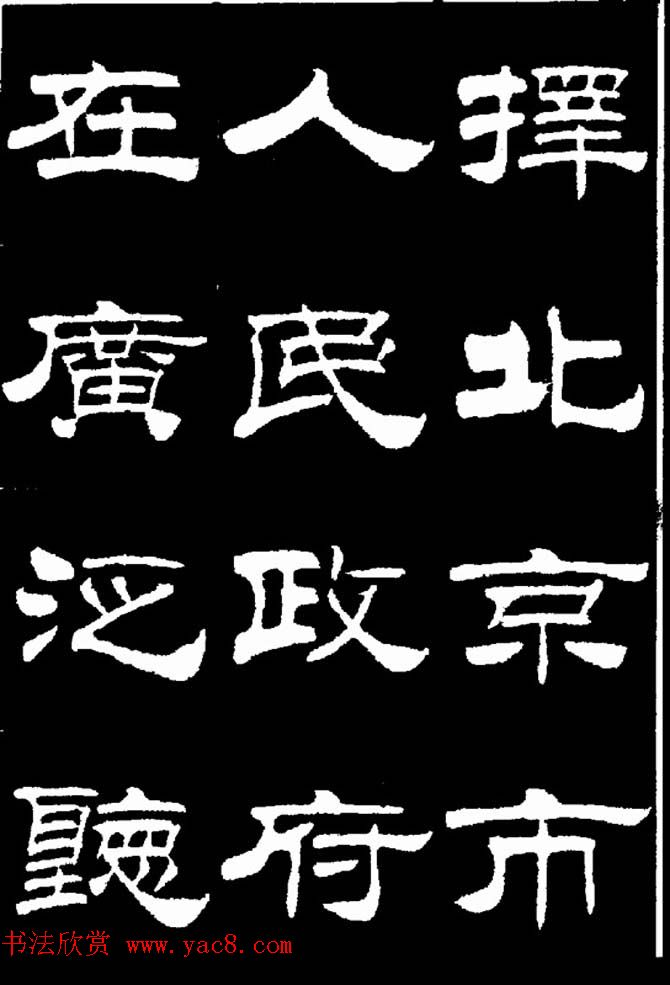 擇北京市
人民政府
在廣泛聽
书法欣赏 www.yac8.com